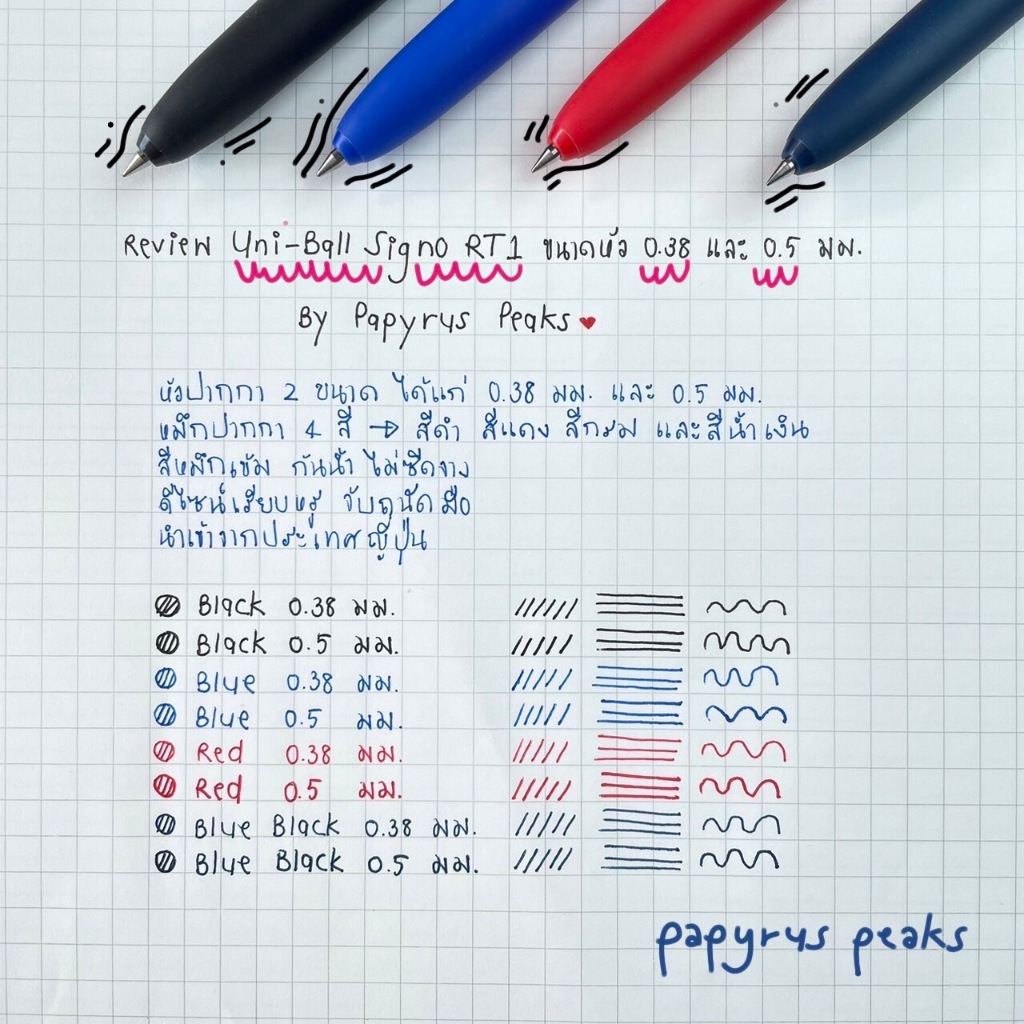 Review Uni-Ball Signo RT1 ขนาดหัว 0.38 และ 0.5 มม.
By Papyrus Peaks
หัวปากกา 2 ขนาด ได้แก่ 0.38 มม. และ 0.5 มม.
หมึกปากกา 4 สี → สีดำ สีแดง สีกรม และสีน้ำเงิน
สีหมึกเข้ม กันน้ำ ไม่ซีดจาง
ดีไซน์เรียบหรู จับถนัดมือ
นำเข้าจากประเทศญี่ปุ่น
Black 0.38 มม.
Black 0.5 มม.
Blue 0.38 มม.
Blue 0.5 มม.
Red 0.38 มม.
Red 0.5 มม.
Blue Black 0.38 มม.
Blue Black 0.5 มม.
papyrus peaks